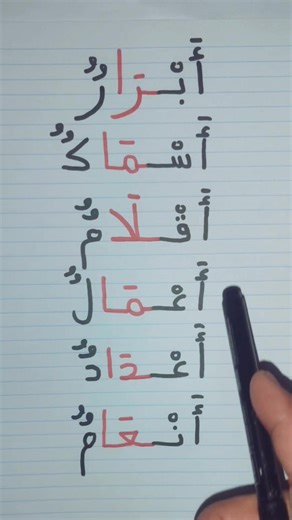 أَبْرَارٌ
أَقْلَامٌ
أَعْمَالٌ
أَعْدَادٌ
أَنْعَامٌ